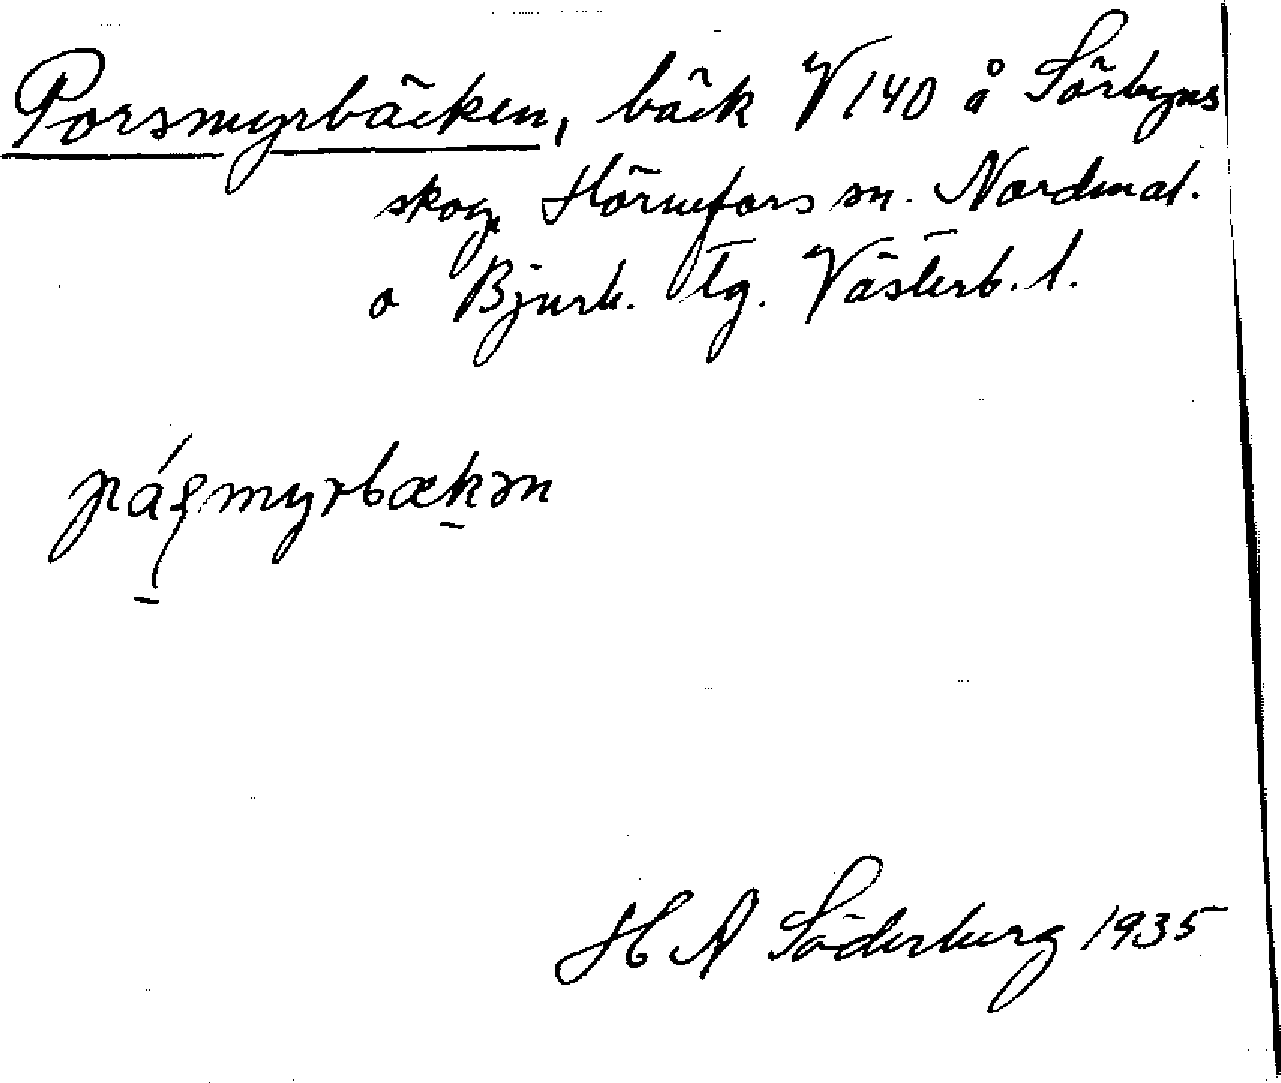 Porsmyrbäcken, bäck V 140 å Sörbyns
skog, Hörnefors sn. Nordmal.
o Bjurh. tg. Västerb. l.
H A Söderberg 1935